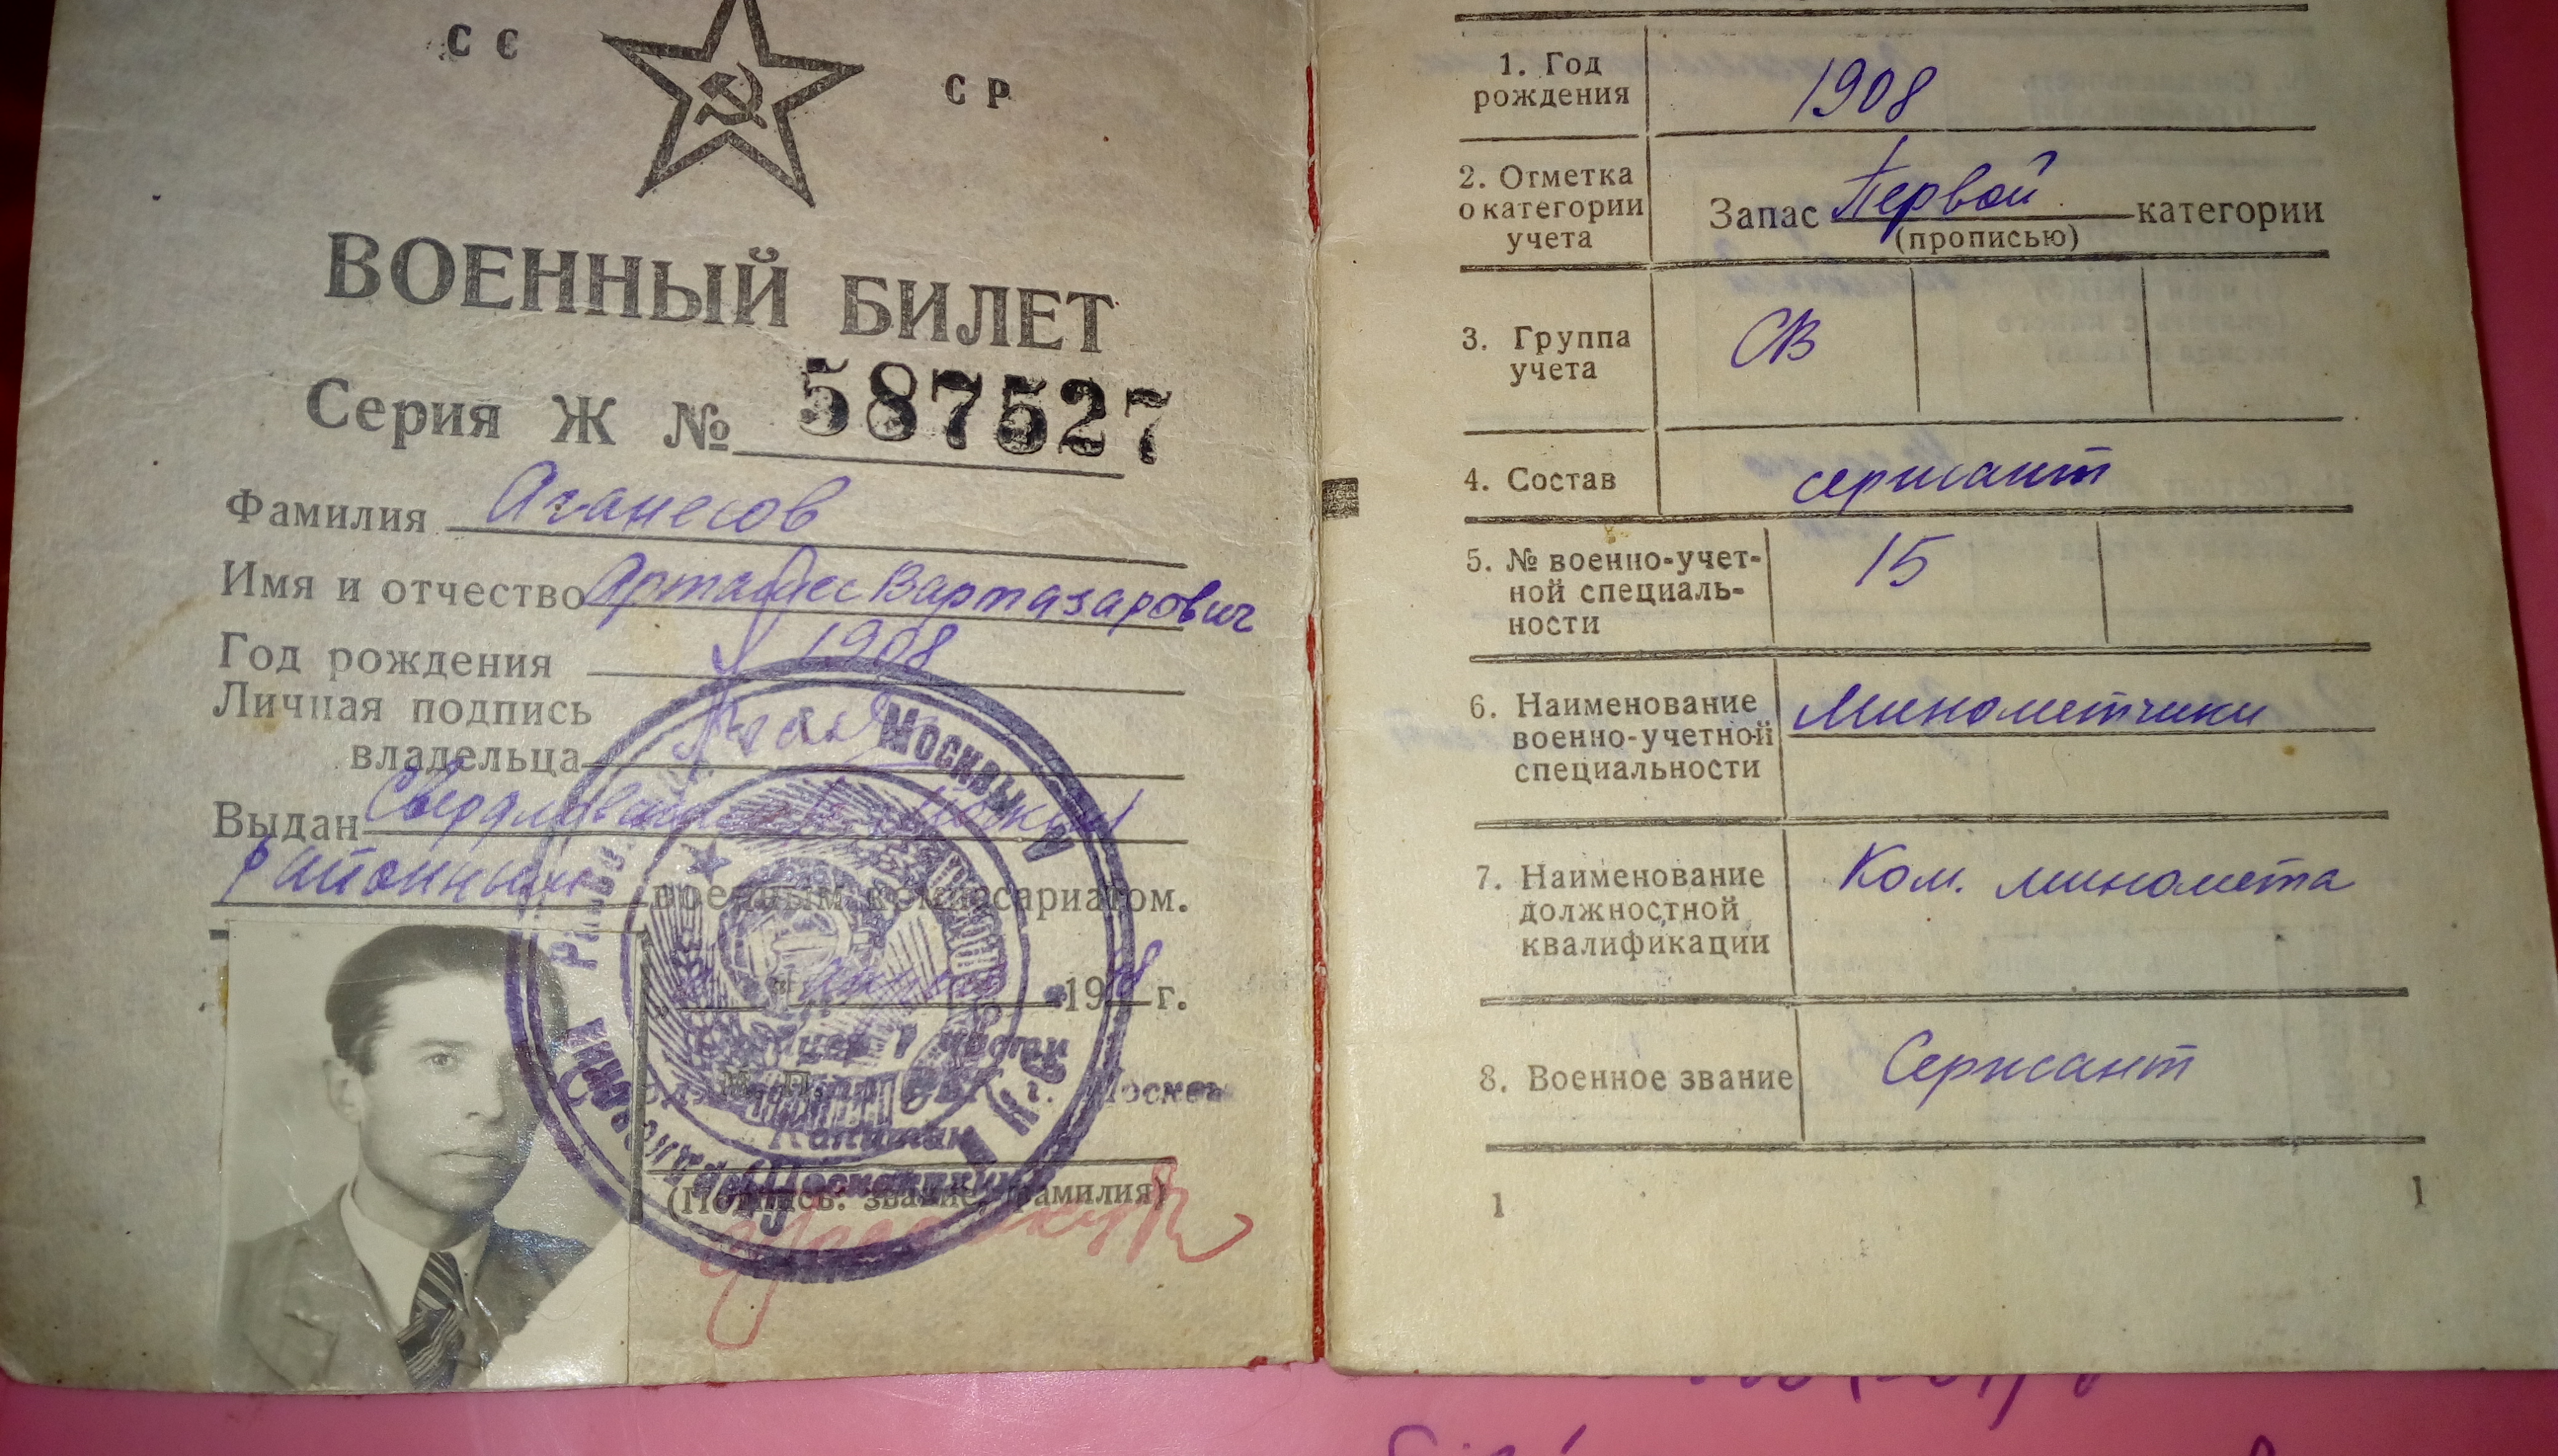 СС
СР
ВОЕННЫЙ БИЛЕТ
Серия Ж № 587527
Фамилия Аганесов
Имя и отчество Вартазарович
Год рождения 1908
Личная подпись
владельца
Выдан Москвы
районным военным комиссариатом.
19 г.
М. П.
г. Москвы
Капитан
(Подпись: звание, фамилия)
1. Год
рождения
1908
2. Отметка
о категории
учета
Запас Первой категории
(прописью)
3. Группа
учета
СВ
4. Состав
сержант
5. № военно-учет-
ной специаль-
ности
15
6. Наименование
военно-учетной
специальности
Минометчики
7. Наименование
должностной
квалификации
Ком. миномета
8. Военное звание
Сержант
1
1